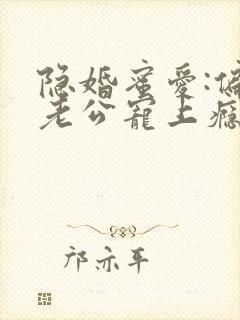 隐婚蜜爱:偏
老公宠上瘾
邝亦平